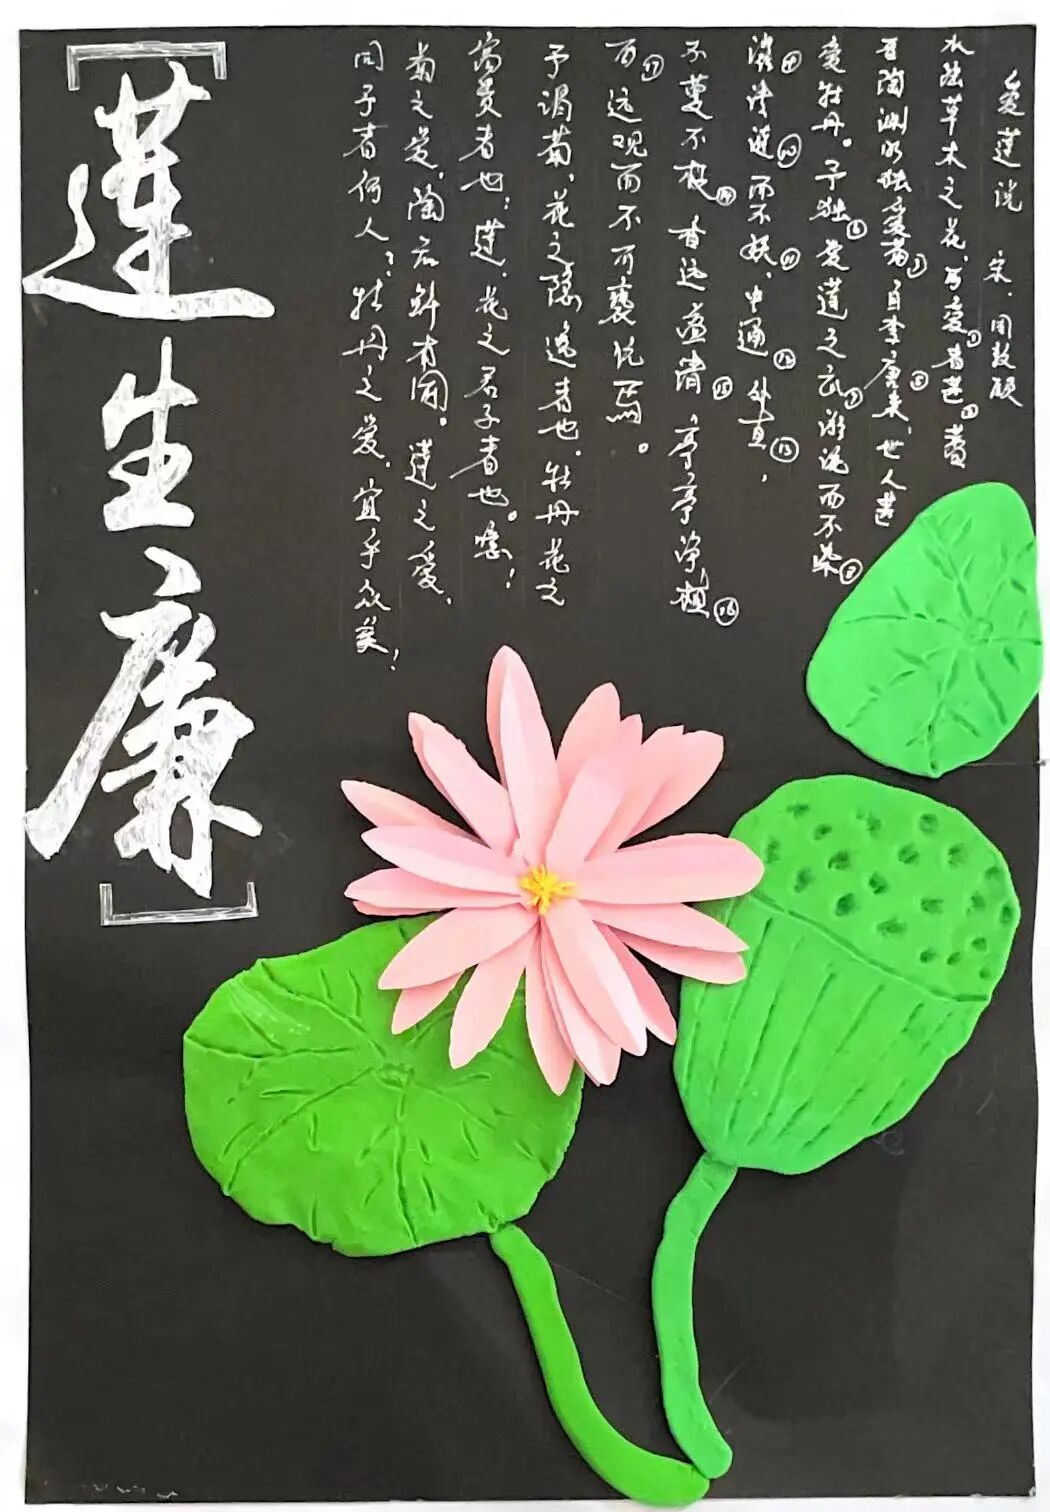 爱莲说 宋·周敦颐
水陆草木之花,可爱①者甚②蕃
晋陶渊明独爱菊③自李唐⑤来,世人甚
爱牡丹。予独⑥爱莲之⑦淤泥而不染⑧
濯清涟⑩而不妖⑪,中通⑫外直⑬,
不蔓不枝⑭香远益清⑮亭亭净植⑯
可⑰远观而不可亵玩焉。
予谓菊,花之隐逸者也,牡丹花之
富贵者也;莲,花之君子者也。噫!
菊之爱,陶后鲜有闻。莲之爱,
同予者何人?牡丹之爱,宜乎众矣!
[莲生廉]